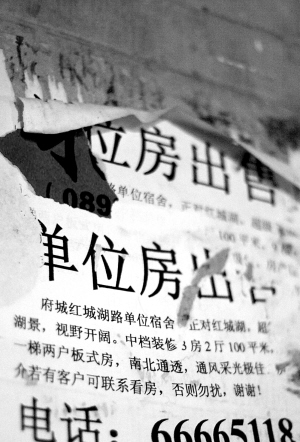 位房出售
(089
路单位宿舍，正对红城湖，
100平米，
单位房出
府城红城湖路单位宿舍 正对红城湖，超
湖景，视野开阔。中档装修3房2厅100平米，
一梯两户板式房，南北通透，通风采光极佳
介若有客户可联系看房，否则勿扰，谢谢！
电话：66665118